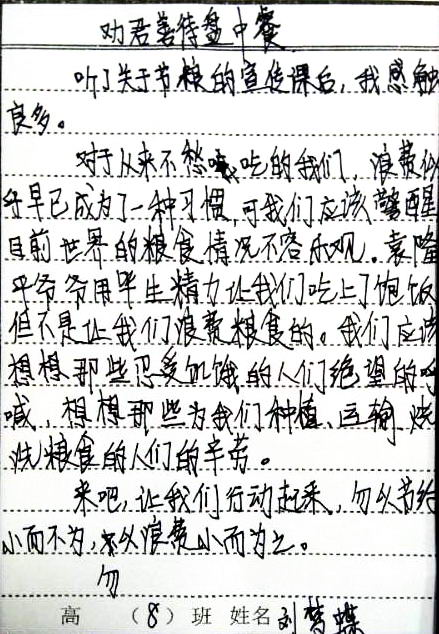 劝君善待盘中餐
听了关于节粮的宣传课后,我感触
良多。
对于从来不愁吃的我们,浪费似
乎早已成为了一种习惯,可我们应该警醒
目前世界的粮食情况不容乐观。袁隆
平爷爷用毕生精力让我们吃上了饱饭
但不是让我们浪费粮食的。我们应该
想想那些忍受饥饿的人们绝望的呼
喊,想想那些为我们种植、运输、烧
洗粮食的人们的辛劳。
来吧,让我们行动起来,勿以节约
小而不为,勿以浪费小而为之。
高 (8)班 姓名 刘梦蝶